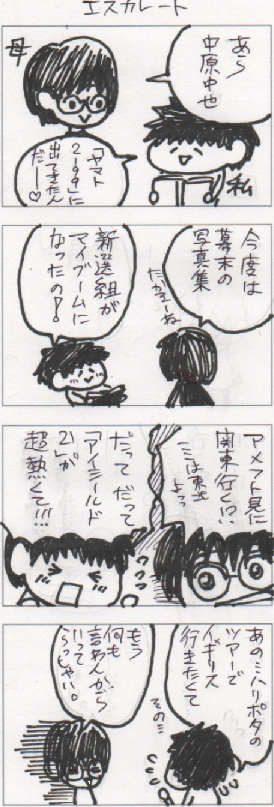 エスカレート
あら
中原中也
母
「ヤマト
2199」に
出てきたん
だー♡
私
今度は
幕末の
写真集
新選組が
マイブームに
なったの!
アメフト見に
関東行く!?
ここは東北
よっ
だって だって
「アイシールド
21」が
超熱くて!!!
あの…ハリポタの
ツアーで
イギリス
行きたくて
その…
もう
何も
言わんから
いって
らっしゃい。